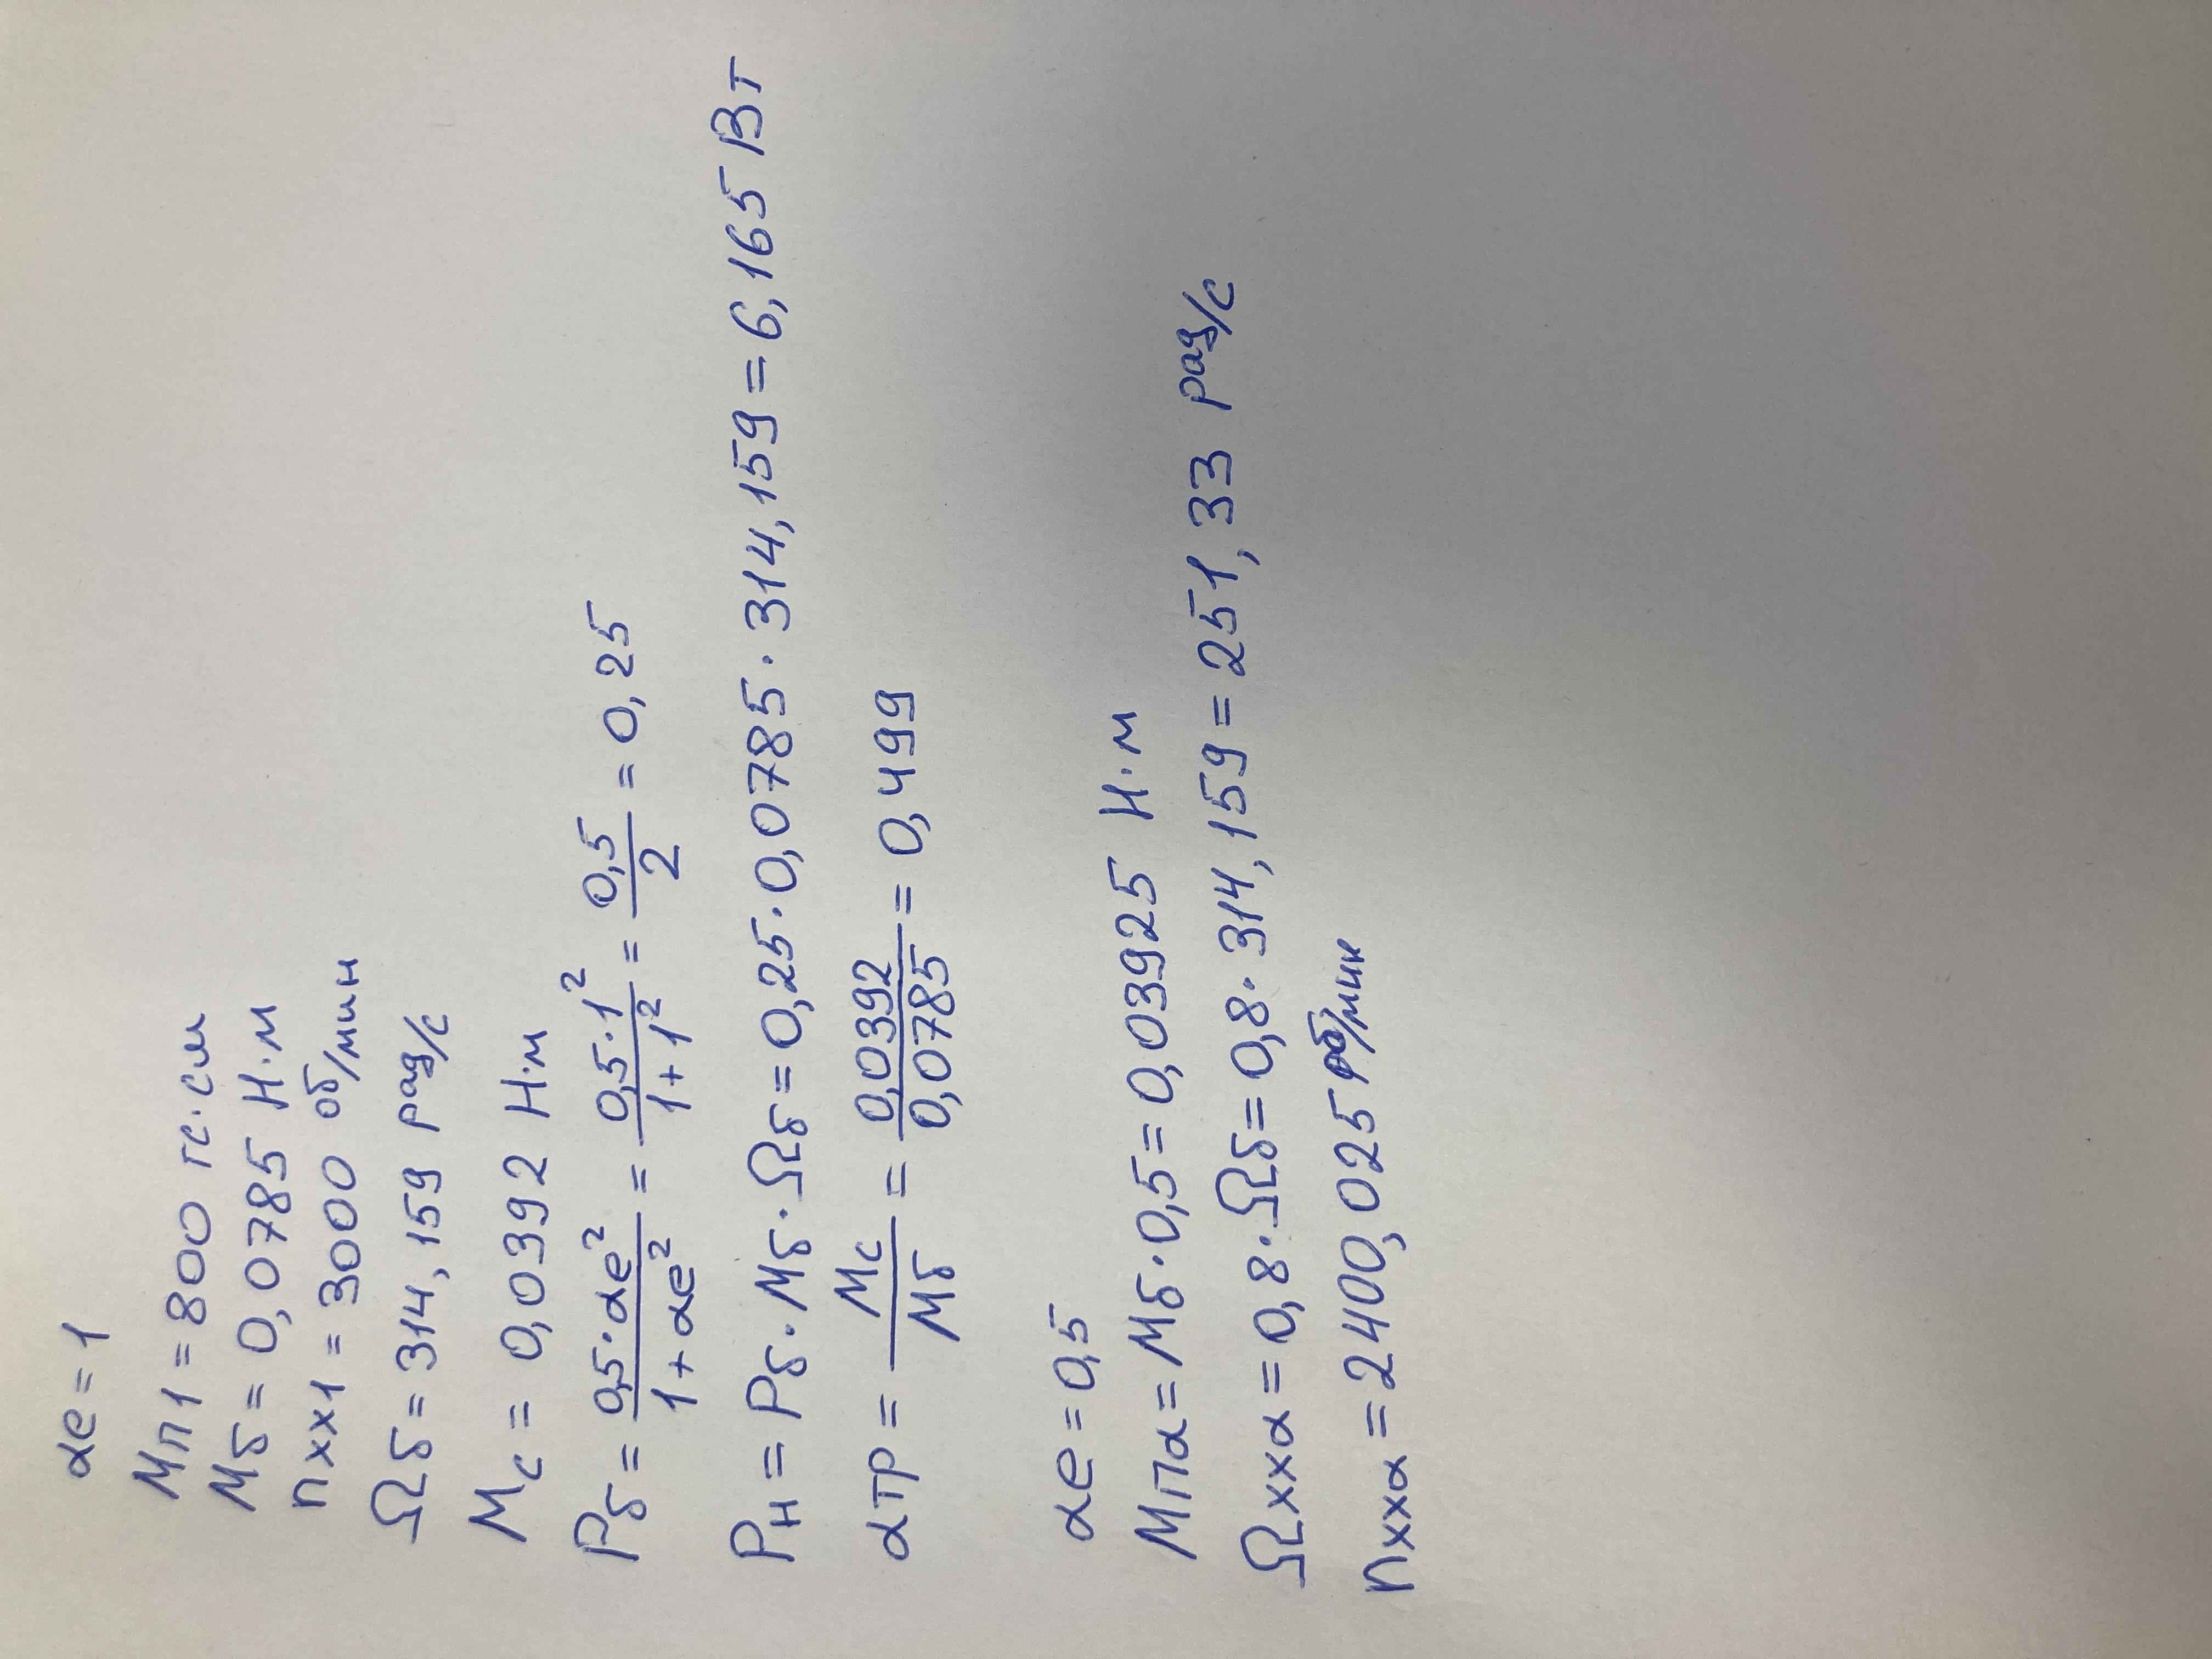 αe = 1
Mп1 = 800 гс·см
Mδ = 0,0785 Н·м
nхх1 = 3000 об/мин
Ωδ = 314,159 рад/с
Mс = 0,0392 Н·м
Pδ = 0,5·αe²/1+αe² = 0,5·1²/1+1² = 0,5/2 = 0,25
Pн = Pδ·Mδ·Ωδ = 0,25·0,0785·314,159 = 6,165 Вт
αтр = Mс/Mδ = 0,0392/0,0785 = 0,499
αe = 0,5
Mпα = Mδ·0,5 = 0,03925 Н·м
Ωххα = 0,8·Ωδ = 0,8·314,159 = 251,33 рад/с
nххα = 2400,025 об/мин